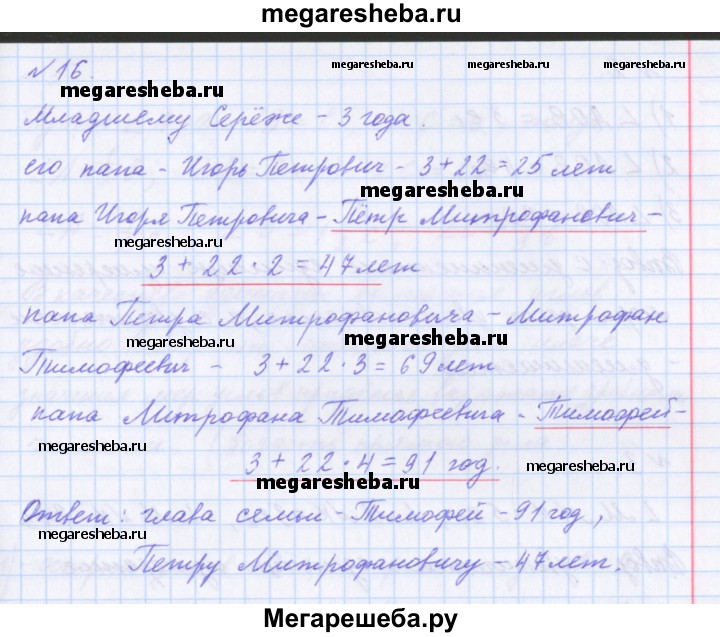 megaresheba.ru
№16.
megaresheba.ru megaresheba.ru megaresheba.ru
Младшему Серёже - 3 года.
его папа - Игорь Петрович - 3 + 22 = 25 лет
megaresheba.ru
папа Игоря Петровича - Пётр Митрофанович -
megaresheba.ru
3 + 22 · 2 = 47 лет
папа Петра Митрофановича - Митрофан
megaresheba.ru
Тимофеевич - 3 + 22 · 3 = 69 лет
папа Митрофана Тимофеевича - Тимофей -
megaresheba.ru
3 + 22 · 4 = 91 год.
megaresheba.ru
megaresheba.ru
Ответ: глава семьи - Тимофей - 91 год,
megaresheba.ru
Петру Митрофановичу - 47 лет.
Мегарешеба.ру